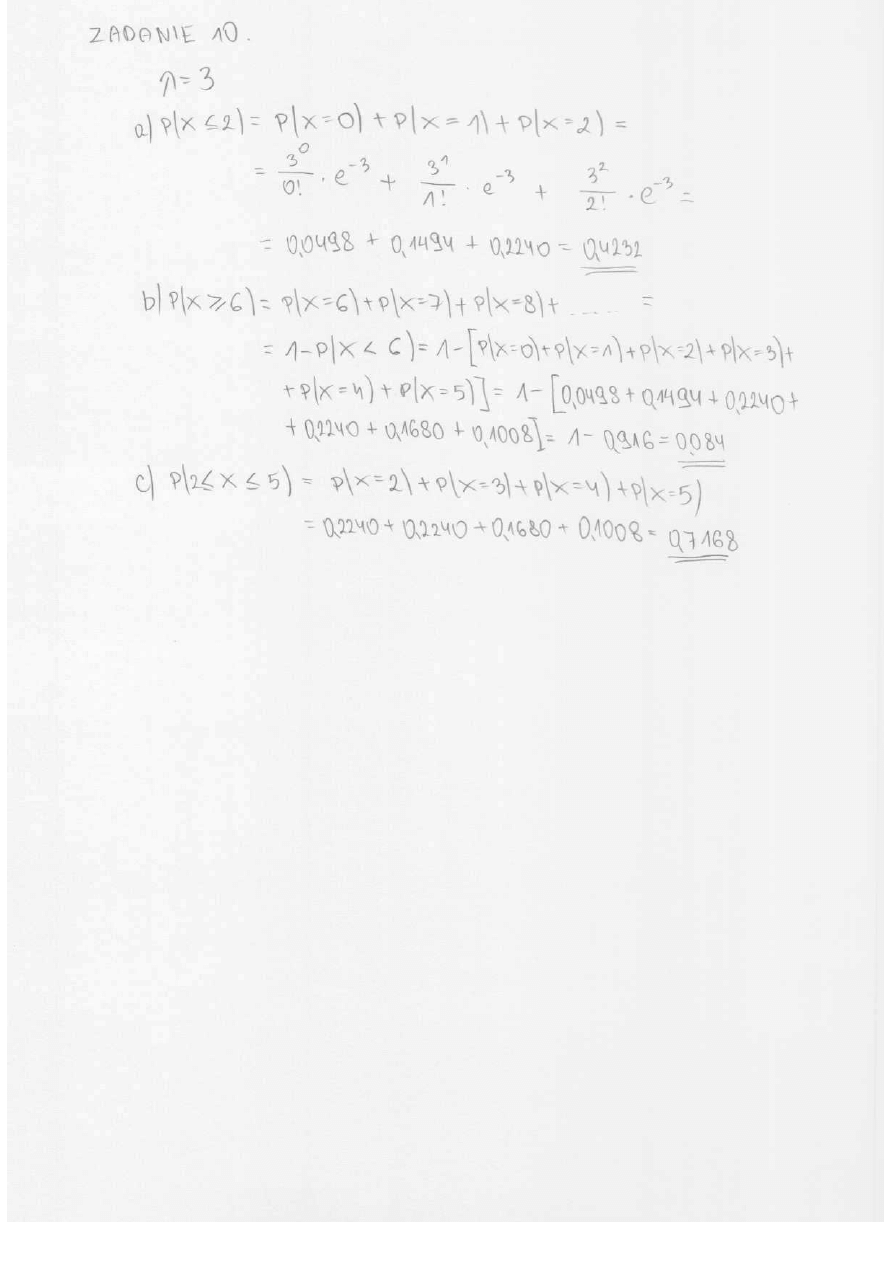 ZADANIE 10.
λ=3
a) P(X≤2) = P(X=0) + P(X=1) + P(X=2) =
= 3^0/0! · e^-3 + 3^1/1! · e^-3 + 3^2/2! · e^-3 =
= 0,0498 + 0,1494 + 0,2240 = 0,4232
b) P(X≥6) = P(X=6) + P(X=7) + P(X=8) + ..... =
= 1-P(X<6) = 1-[P(X=0)+P(X=1)+P(X=2)+P(X=3)+
+P(X=4)+P(X=5)] = 1-[0,0498+0,1494+0,2240+
+0,2240+0,1680+0,1008] = 1-0,916=0,084
c) P(2≤X≤5) = P(X=2)+P(X=3)+P(X=4)+P(X=5)
= 0,2240+0,2240+0,1680+0,1008= 0,7168